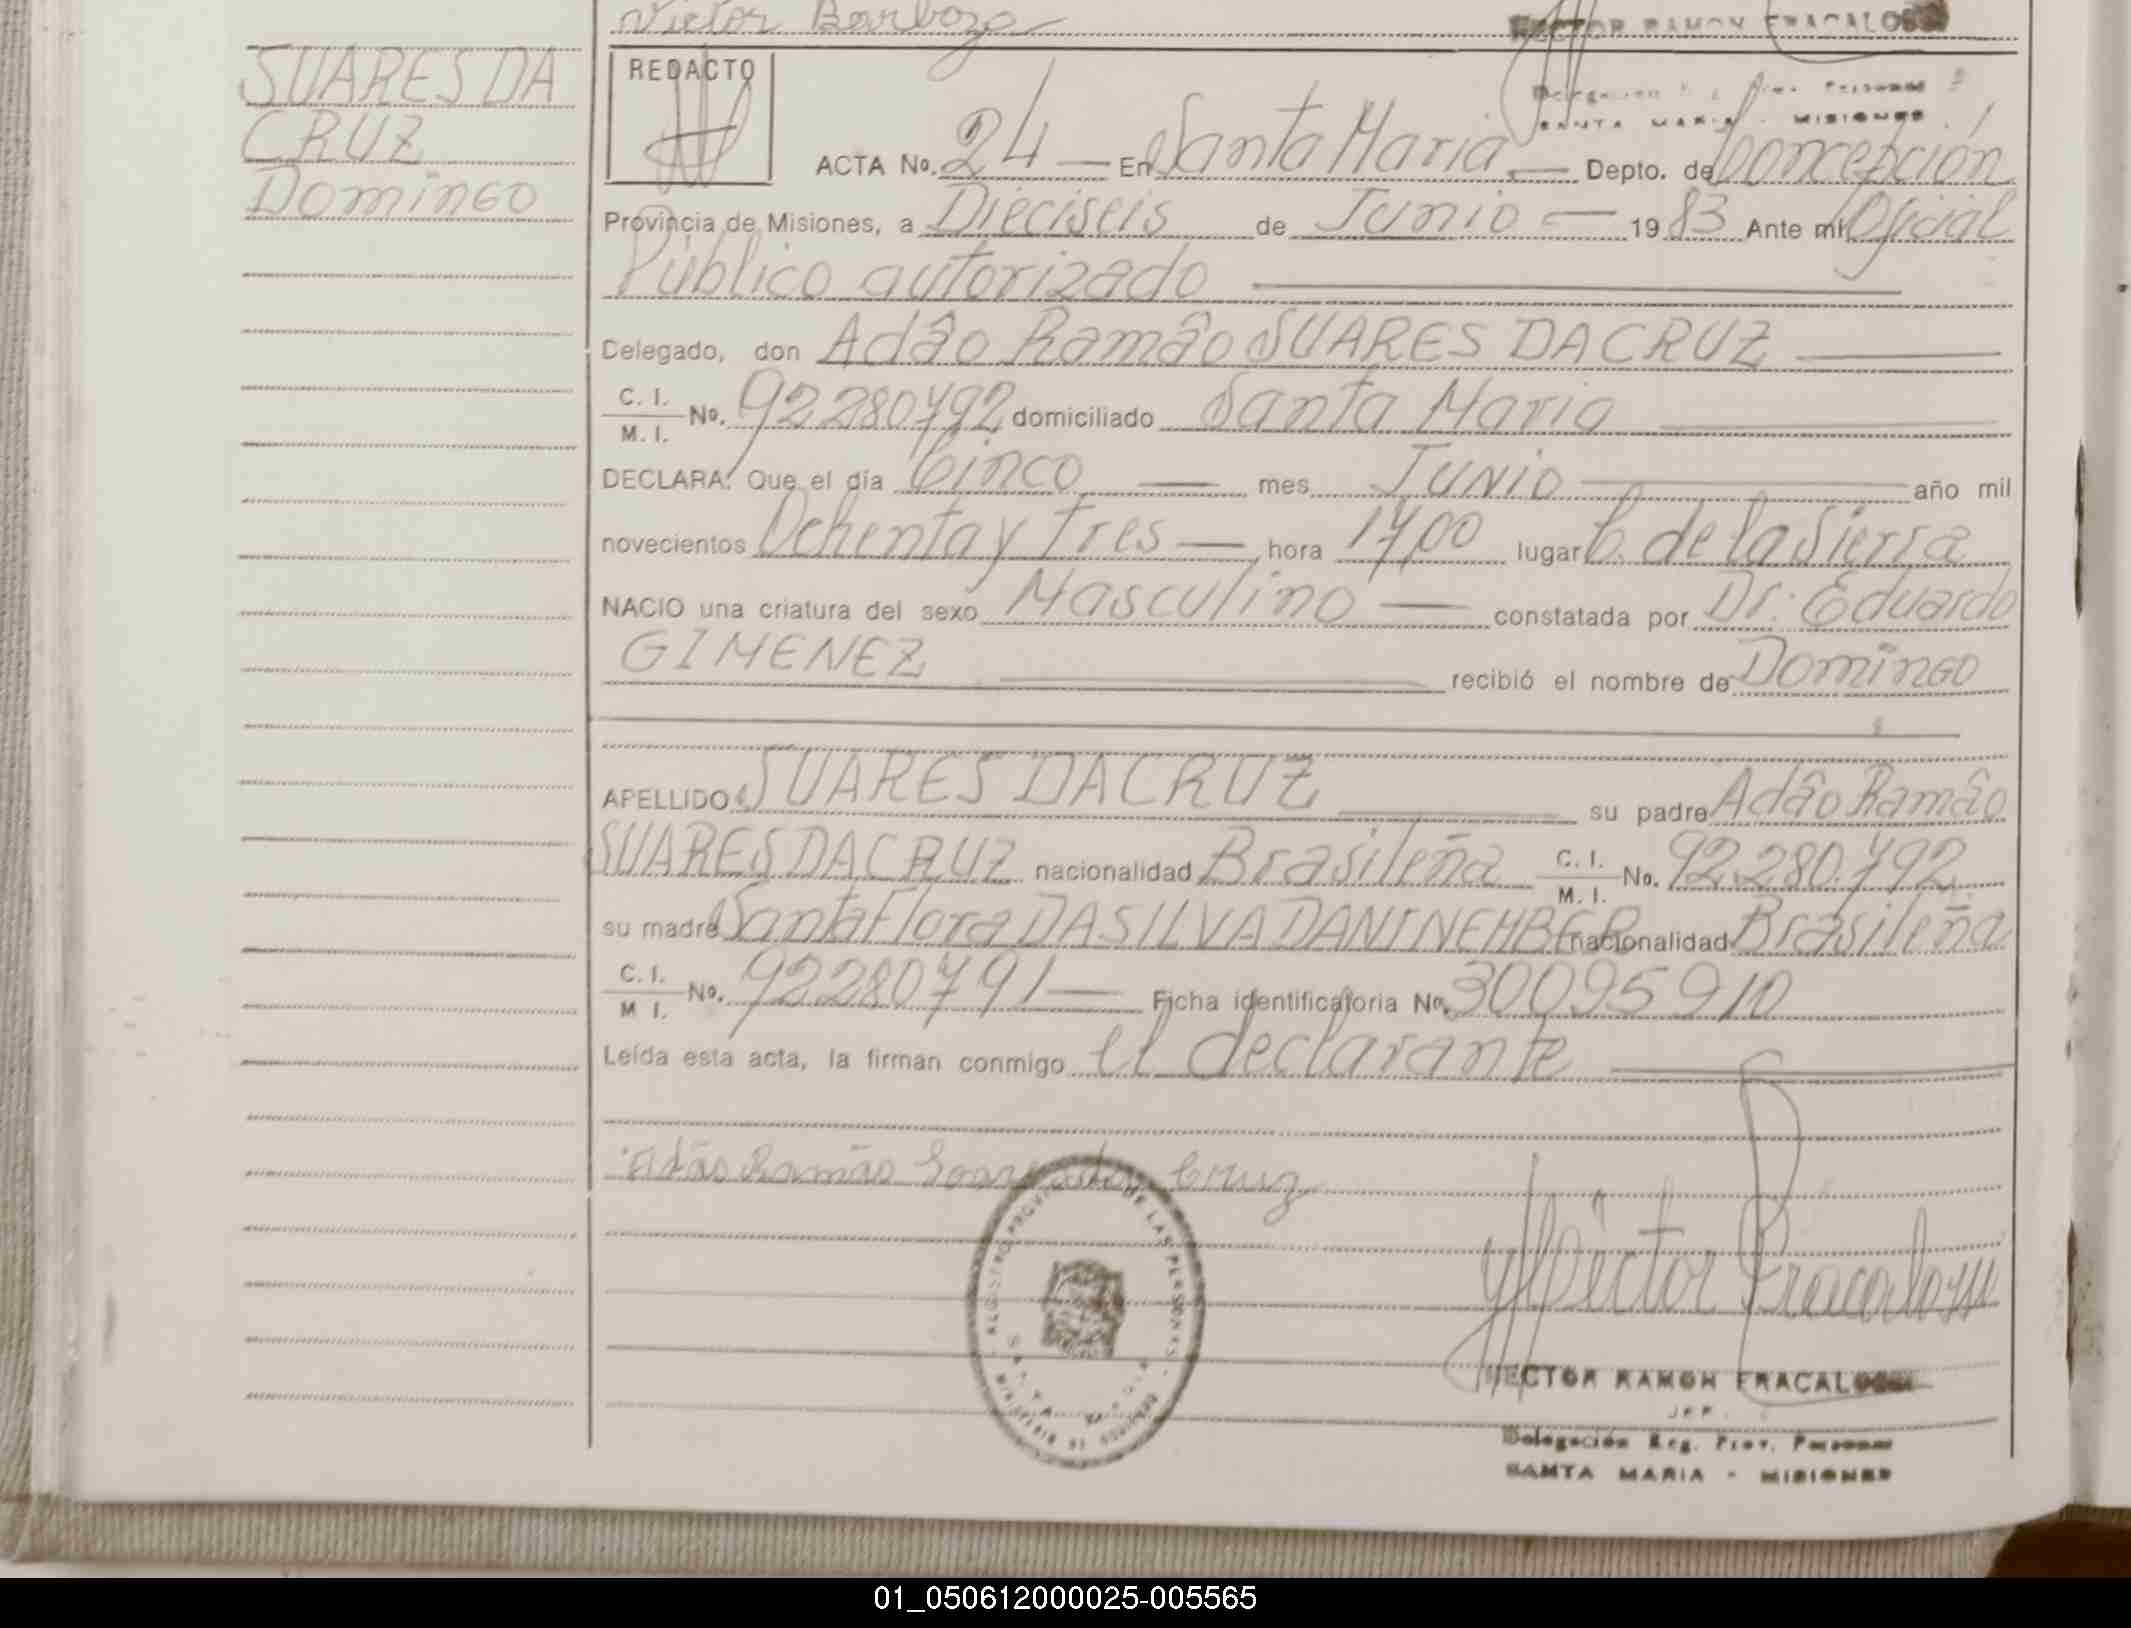 Victor Barboza
HECTOR RAMON FRACALOSSI
Delegación Prov. Personas
SANTA MARIA - MISIONES
SUARES DA
CRUZ
Domingo
REDACTO
ACTA No. 24 — En Santa Maria — Depto. de Concepción
Provincia de Misiones, a Dieciseis de Junio — 1983 Ante mi Oficial
Público autorizado
Delegado, don Adão Ramão SUARES DA CRUZ
C. I.
M. I. No. 92280792 domiciliado Santa Maria
DECLARA: Que el día Cinco — mes Junio — año mil
novecientos Ochenta y Tres — hora 17,00 lugar C. de la Sierra
NACIO una criatura del sexo Masculino — constatada por Dr. Eduardo
GIMENEZ recibió el nombre de Domingo
APELLIDO SUARES DA CRUZ su padre Adão Ramão
SUARES DA CRUZ nacionalidad Brasileña C. I. M. I. No. 92.280.792
su madre Santa Flora DA SILVA DANINEHBER nacionalidad Brasileña
C. I.
M I. No. 92280791 — Ficha identificatoria No. 30095910
Leída esta acta, la firman conmigo el declarante
Adão Ramão Soares da Cruz
Hector Fracalossi
REGISTRO PROVINCIAL DE LAS PERSONAS
SANTA MARIA
MINISTERIO DE GOBIERNO
HECTOR RAMON FRACALOSSI
JEFE
Delegación Reg. Prov. Personas
SANTA MARIA - MISIONES
01_050612000025-005565